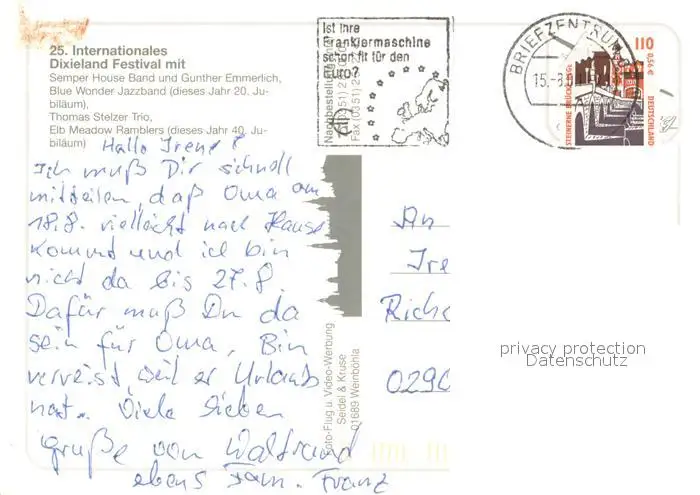 25. Internationales
Dixieland Festival mit
Semper House Band und Gunther Emmerlich,
Blue Wonder Jazzband (dieses Jahr 20. Ju-
biläum),
Thomas Stelzer Trio,
Elb Meadow Ramblers (dieses Jahr 40. Ju-
biläum)
Hallo Irene!
Ich muß Dir schnell
mitteilen, daß Oma am
18.8. vielleicht nach Hause
kommt und ich bin
nicht da bis 27.8.
Dafür muß Du da
sein für Oma. Bin
verreist, weil er Urlaub
hat. Viele lieben
grüße von Waltraud
ebens Fam. Franz
Nachbestellung
Fax (0351)
Foto-Flug u. Video-Werbung
Seidel & Kruse
01689 Weinböhla
Ist Ihre
Frankiermaschine
schon fit für den
Euro?
BRIEFZENTRUM
110
0,56 €
DEUTSCHLAND
STEINERNE BRÜCKE
An
Ire
Riche
0290
privacy protection
Datenschutz